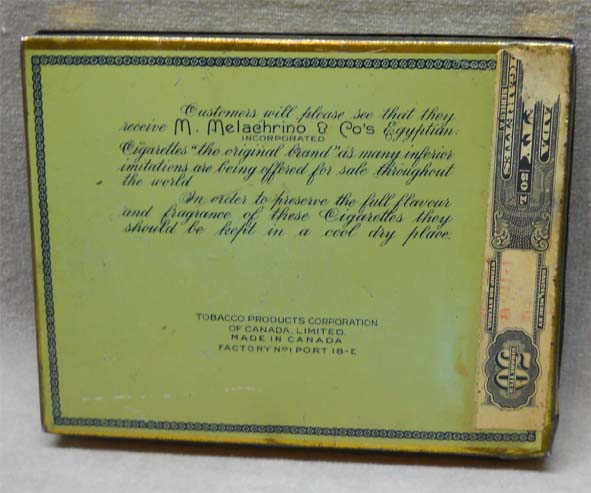 Customers will please see that they
receive M. Melachrino & Co's Egyptian
INCORPORATED
Cigarettes "the original brand" as many inferior
imitations are being offered for sale throughout
the world
In order to preserve the full flavour
and fragrance of these Cigarettes they
should be kept in a cool dry place.
TOBACCO PRODUCTS CORPORATION
OF CANADA, LIMITED.
MADE IN CANADA
FACTORY Nº1 PORT 18-E
50
CIGARETTES